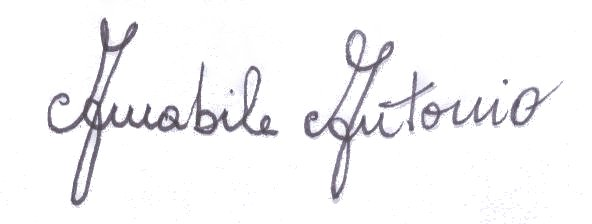 Amabile Antonio